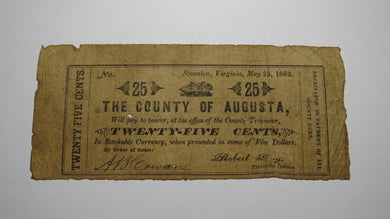 TWENTY-FIVE CENTS.
No. Staunton, Virginia, May 25, 1862.
25 25
THE COUNTY OF AUGUSTA,
Will pay to bearer, at the office of the County Treasurer,
TWENTY-FIVE CENTS,
In Bankable Currency, when presented in sums of Five Dollars.
By Order of Court:
RECEIVABLE IN PAYMENT OF ALL
COUNTY DUES.